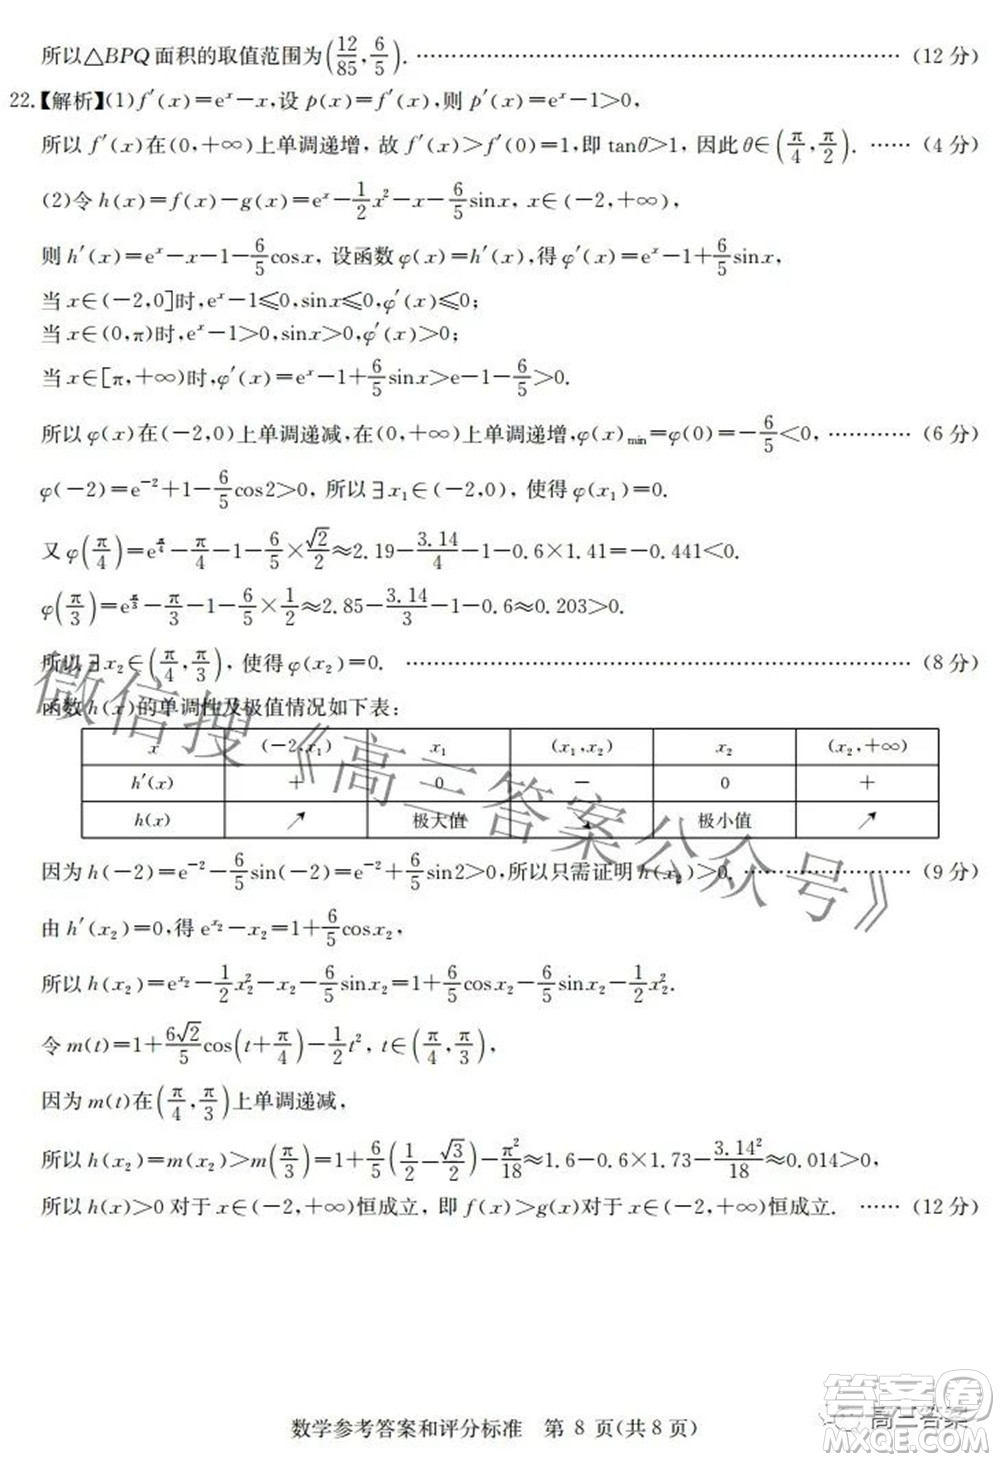 所以△BPQ 面积的取值范围为(12/85, 6/5). ………………………………………… (12 分)
22.【解析】(1)f′(x)=eˣ-x,设 p(x)=f′(x),则 p′(x)=eˣ-1>0,
所以 f′(x)在(0,+∞)上单调递增,故 f′(x)>f′(0)=1,即 tanθ>1,因此 θ∈(π/4, π/2). …… (4 分)
(2)令 h(x)=f(x)-g(x)=eˣ-1/2x²-x-6/5sinx, x∈(-2,+∞),
则 h′(x)=eˣ-x-1-6/5cosx,设函数 φ(x)=h′(x),得 φ′(x)=eˣ-1+6/5sinx,
当 x∈(-2,0]时,eˣ-1≤0,sinx≤0,φ′(x)≤0;
当 x∈(0,π)时,eˣ-1>0,sinx>0,φ′(x)>0;
当 x∈[π,+∞)时,φ′(x)=eˣ-1+6/5sinx>e-1-6/5>0.
所以 φ(x)在(-2,0)上单调递减,在(0,+∞)上单调递增,φ(x)min=φ(0)=-6/5<0, ………… (6 分)
φ(-2)=e⁻²+1-6/5cos2>0,所以∃x₁∈(-2,0),使得 φ(x₁)=0.
又 φ(π/4)=e^(π/4)-π/4-1-6/5×√2/2≈2.19-3.14/4-1-0.6×1.41=-0.441<0.
φ(π/3)=e^(π/3)-π/3-1-6/5×1/2≈2.85-3.14/3-1-0.6≈0.203>0.
所以∃x₂∈(π/4, π/3),使得 φ(x₂)=0. ………………………………………… (8 分)
函数 h(x)的单调性及极值情况如下表:
x (-2,x₁) x₁ (x₁,x₂) x₂ (x₂,+∞)
h′(x) + 0 - 0 +
h(x) ↗ 极大值 ↘ 极小值 ↗
因为 h(-2)=e⁻²-6/5sin(-2)=e⁻²+6/5sin2>0,所以只需证明 h(x₂)>0. …………………… (9 分)
由 h′(x₂)=0,得 e^(x₂)-x₂=1+6/5cosx₂,
所以 h(x₂)=e^(x₂)-1/2x₂²-x₂-6/5sinx₂=1+6/5cosx₂-6/5sinx₂-1/2x₂².
令 m(t)=1+6√2/5cos(t+π/4)-1/2t², t∈(π/4, π/3),
因为 m(t)在(π/4, π/3)上单调递减,
所以 h(x₂)=m(x₂)>m(π/3)=1+6/5(1/2-√3/2)-π²/18≈1.6-0.6×1.73-3.14²/18≈0.014>0,
所以 h(x)>0 对于 x∈(-2,+∞)恒成立,即 f(x)>g(x)对于 x∈(-2,+∞)恒成立. …… (12 分)
微信搜《高三答案公众号》
数学参考答案和评分标准 第 8 页(共 8 页)
答案圈
高三答案